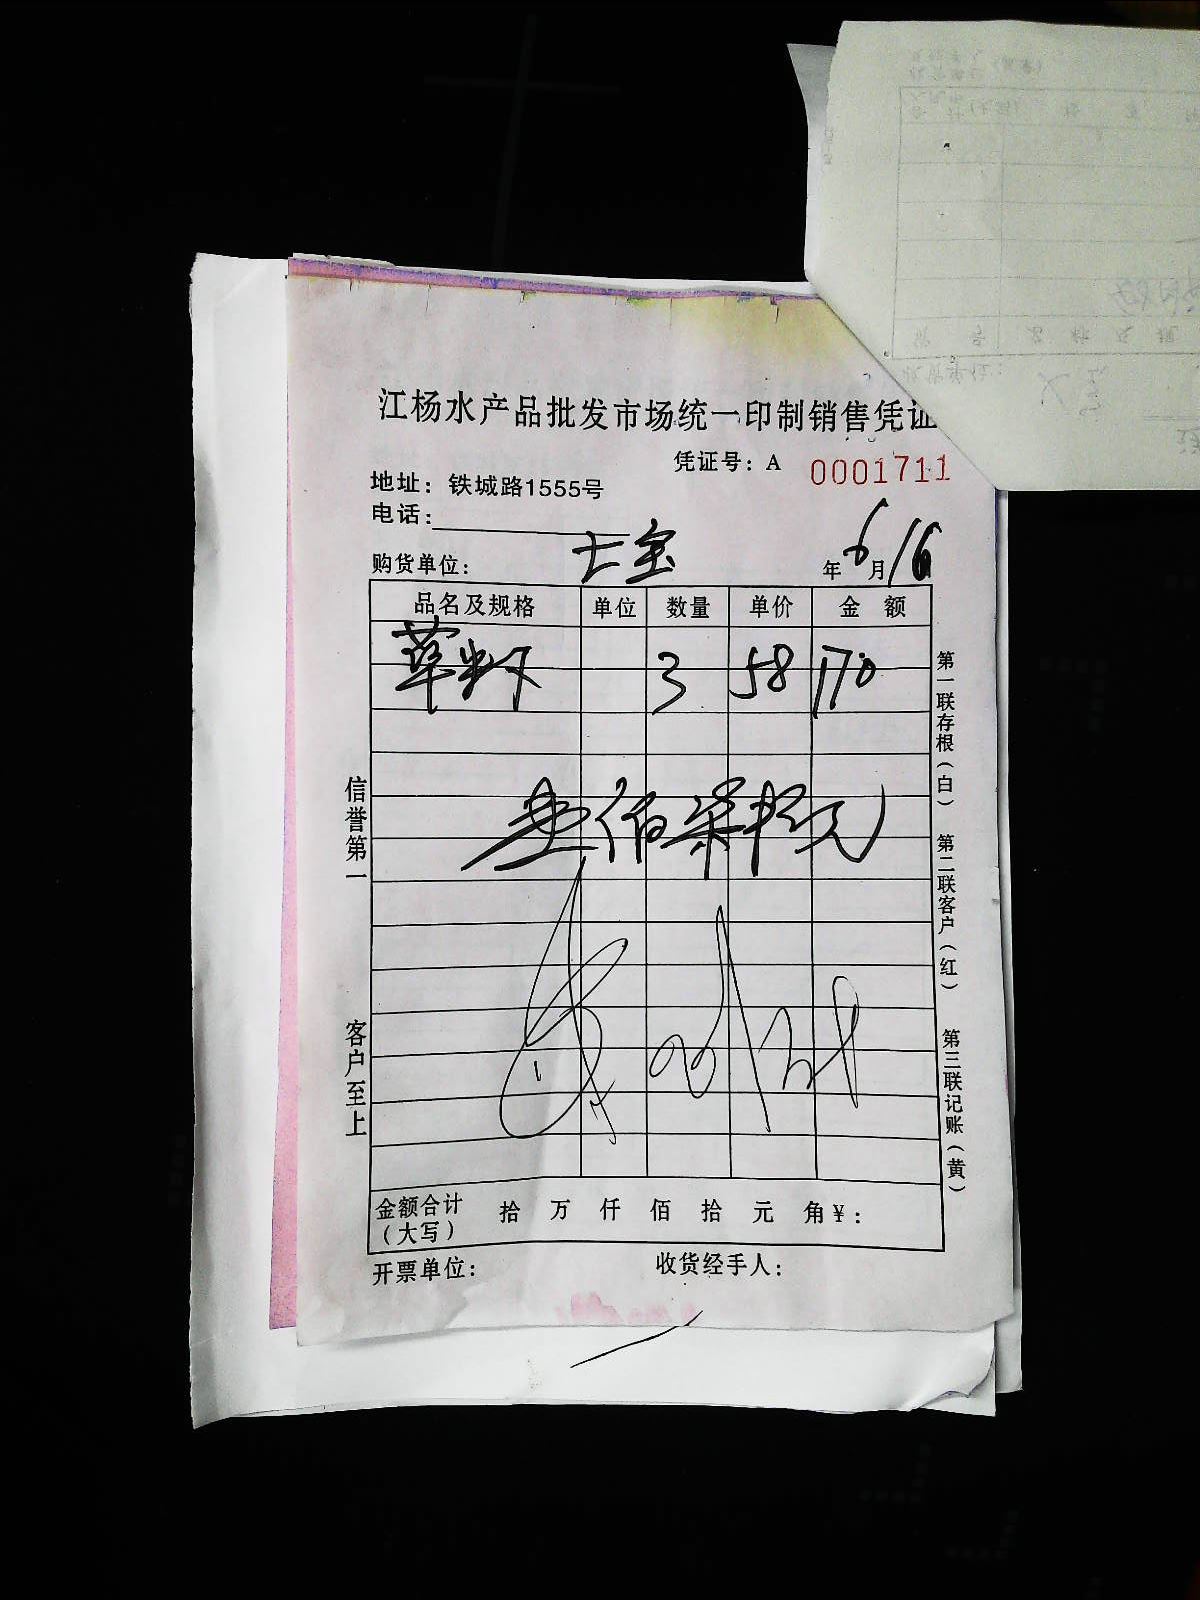 江杨水产品批发市场统一印制销售凭证
凭证号：A 0001711
地址：铁城路1555号
电话：
购货单位： 七宝 年 6 月 16
品名及规格 单位 数量 单价 金 额
草虾 3 58 170
壹佰柒拾元
信誉第一 客户至上
第一联存根（白） 第二联客户（红） 第三联记账（黄）
金额合计 拾 万 仟 佰 拾 元 角¥：
（大写）
开票单位： 收货经手人：